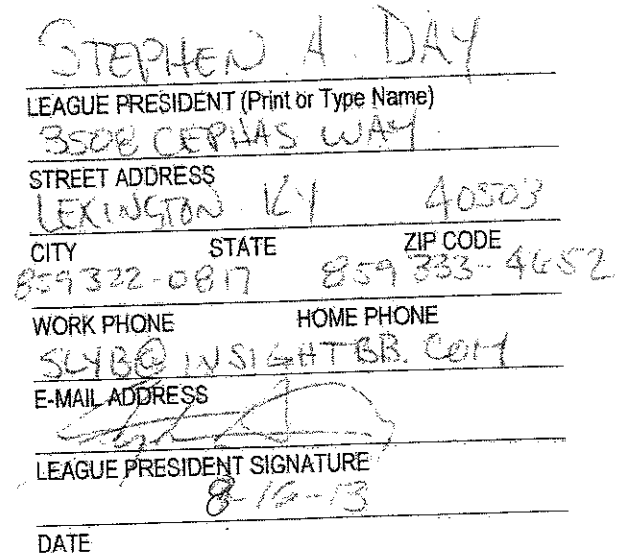 STEPHEN A. DAY
LEAGUE PRESIDENT (Print or Type Name)
3508 CEPHAS WAY
STREET ADDRESS
LEXINGTON KY 40503
CITY STATE ZIP CODE
859 322-0817 859 333-4652
WORK PHONE HOME PHONE
SLYB@INSIGHTBB.COM
E-MAIL ADDRESS
LEAGUE PRESIDENT SIGNATURE
8-16-13
DATE